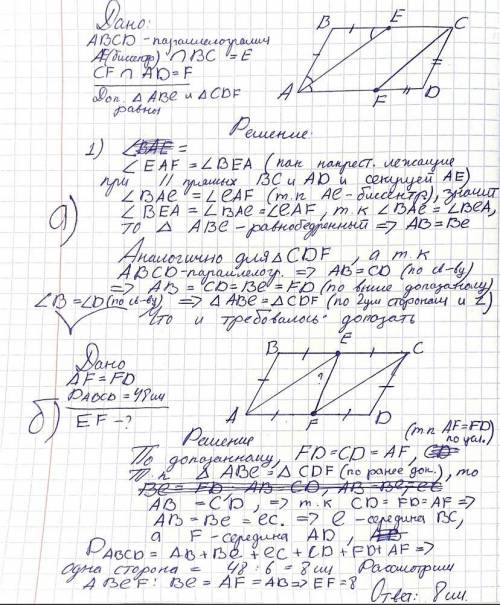 Дано:
ABCD - параллелограмм
AE(биссектр) ∩ BC = E
CF ∩ AD = F
Док. △ABE и △CDF
равны
B E C
A F D
Решение:
а)
1) ∠BAE =
∠EAF = ∠BEA (как накрест. лежащие
при || прямых BC и AD и секущей AE)
∠BAE = ∠EAF (т.к AE - биссектр), значит
∠BEA = ∠BAE = ∠EAF, т.к ∠BAE = ∠BEA,
то △ ABE - равнобедренный => AB = BE
Аналогично для △CDF, а т.к
ABCD-параллелогр. => AB = CD (по св-ву)
=> AB = CD = BE = FD (по выше доказаному)
∠B = ∠D (по св-ву) => △ABE = △CDF (по 2ум сторонам и ∠)
Что и требовалось доказать
б)
Дано
AF = FD
PABCD = 48см
EF - ?
B E C
?
A F D
Решение
(т.к AF=FD)
по усл.)
По доказанному, FD = CD = AF, CD
Т.к △ ABE = △CDF (по ранее док.), то
BE = FD, AB = CD, AB = BE = EC
AB = CD, => т.к CD = FD = AF =>
AB = BE = EC. => E - середина BC,
а F - середина AD, AB
PABCD = AB + BE + EC + CD + FD + AF =>
одна сторона = 48 : 6 = 8 см Рассмотрим
ABEF: BE = AF = AB => EF = 8
Ответ: 8 см.